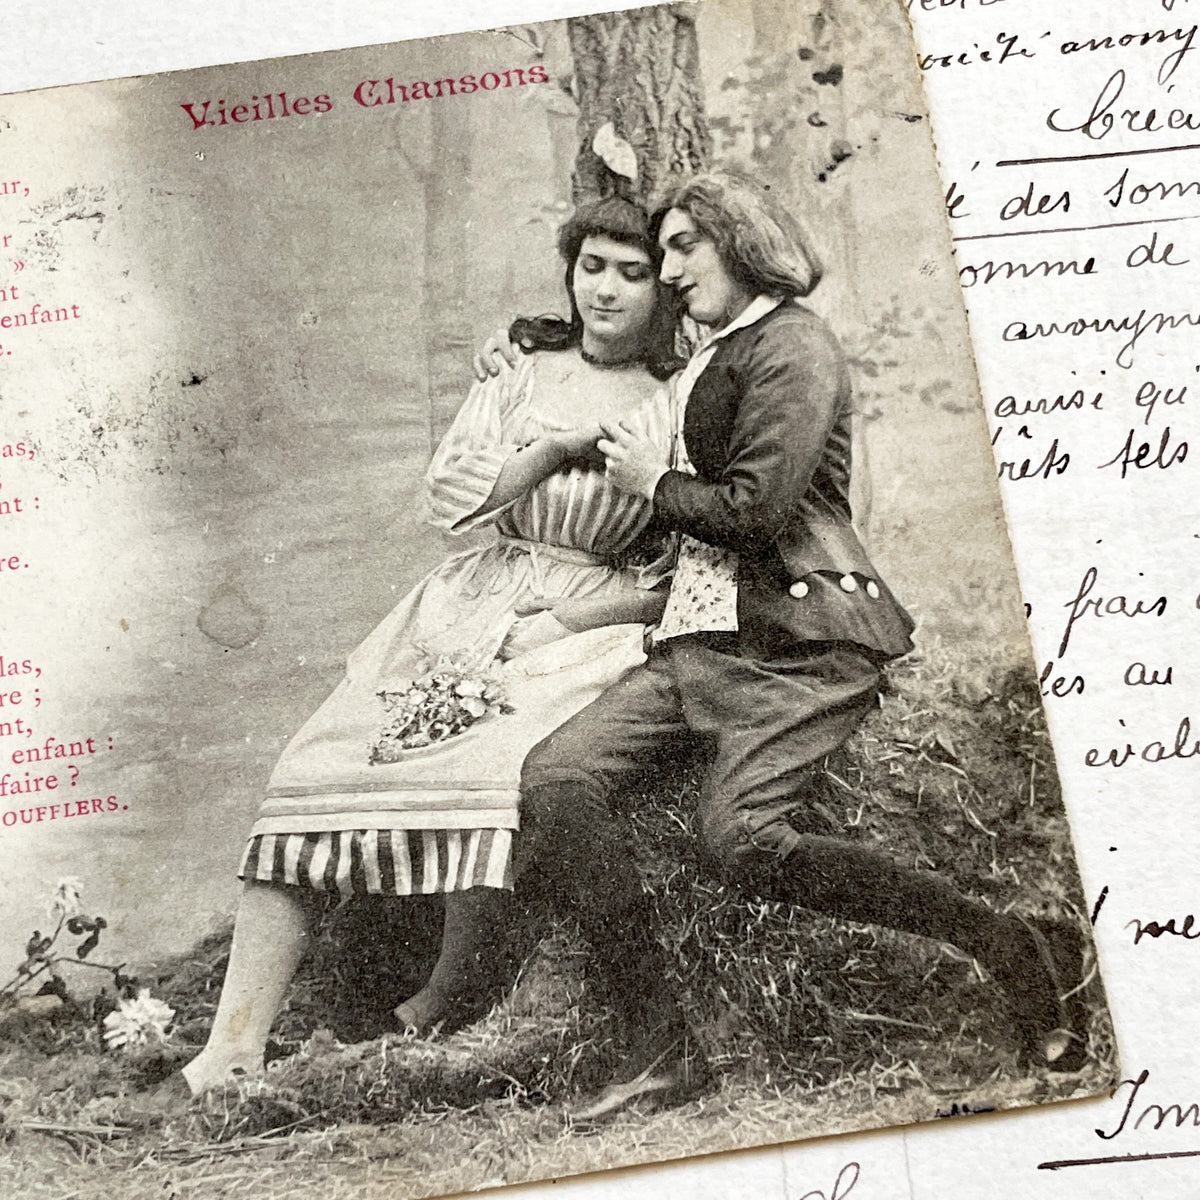 Vieilles Chansons
ur,
r
»
nt
enfant
e.
as,
,
nt :
re.
las,
re ;
nt,
enfant :
faire ?
OUFFLERS.
ociété anony
Créa
té des Som
omme de
anonyme
ainsi qu'
rêts tels
frais
les au
évalu
me
Imm